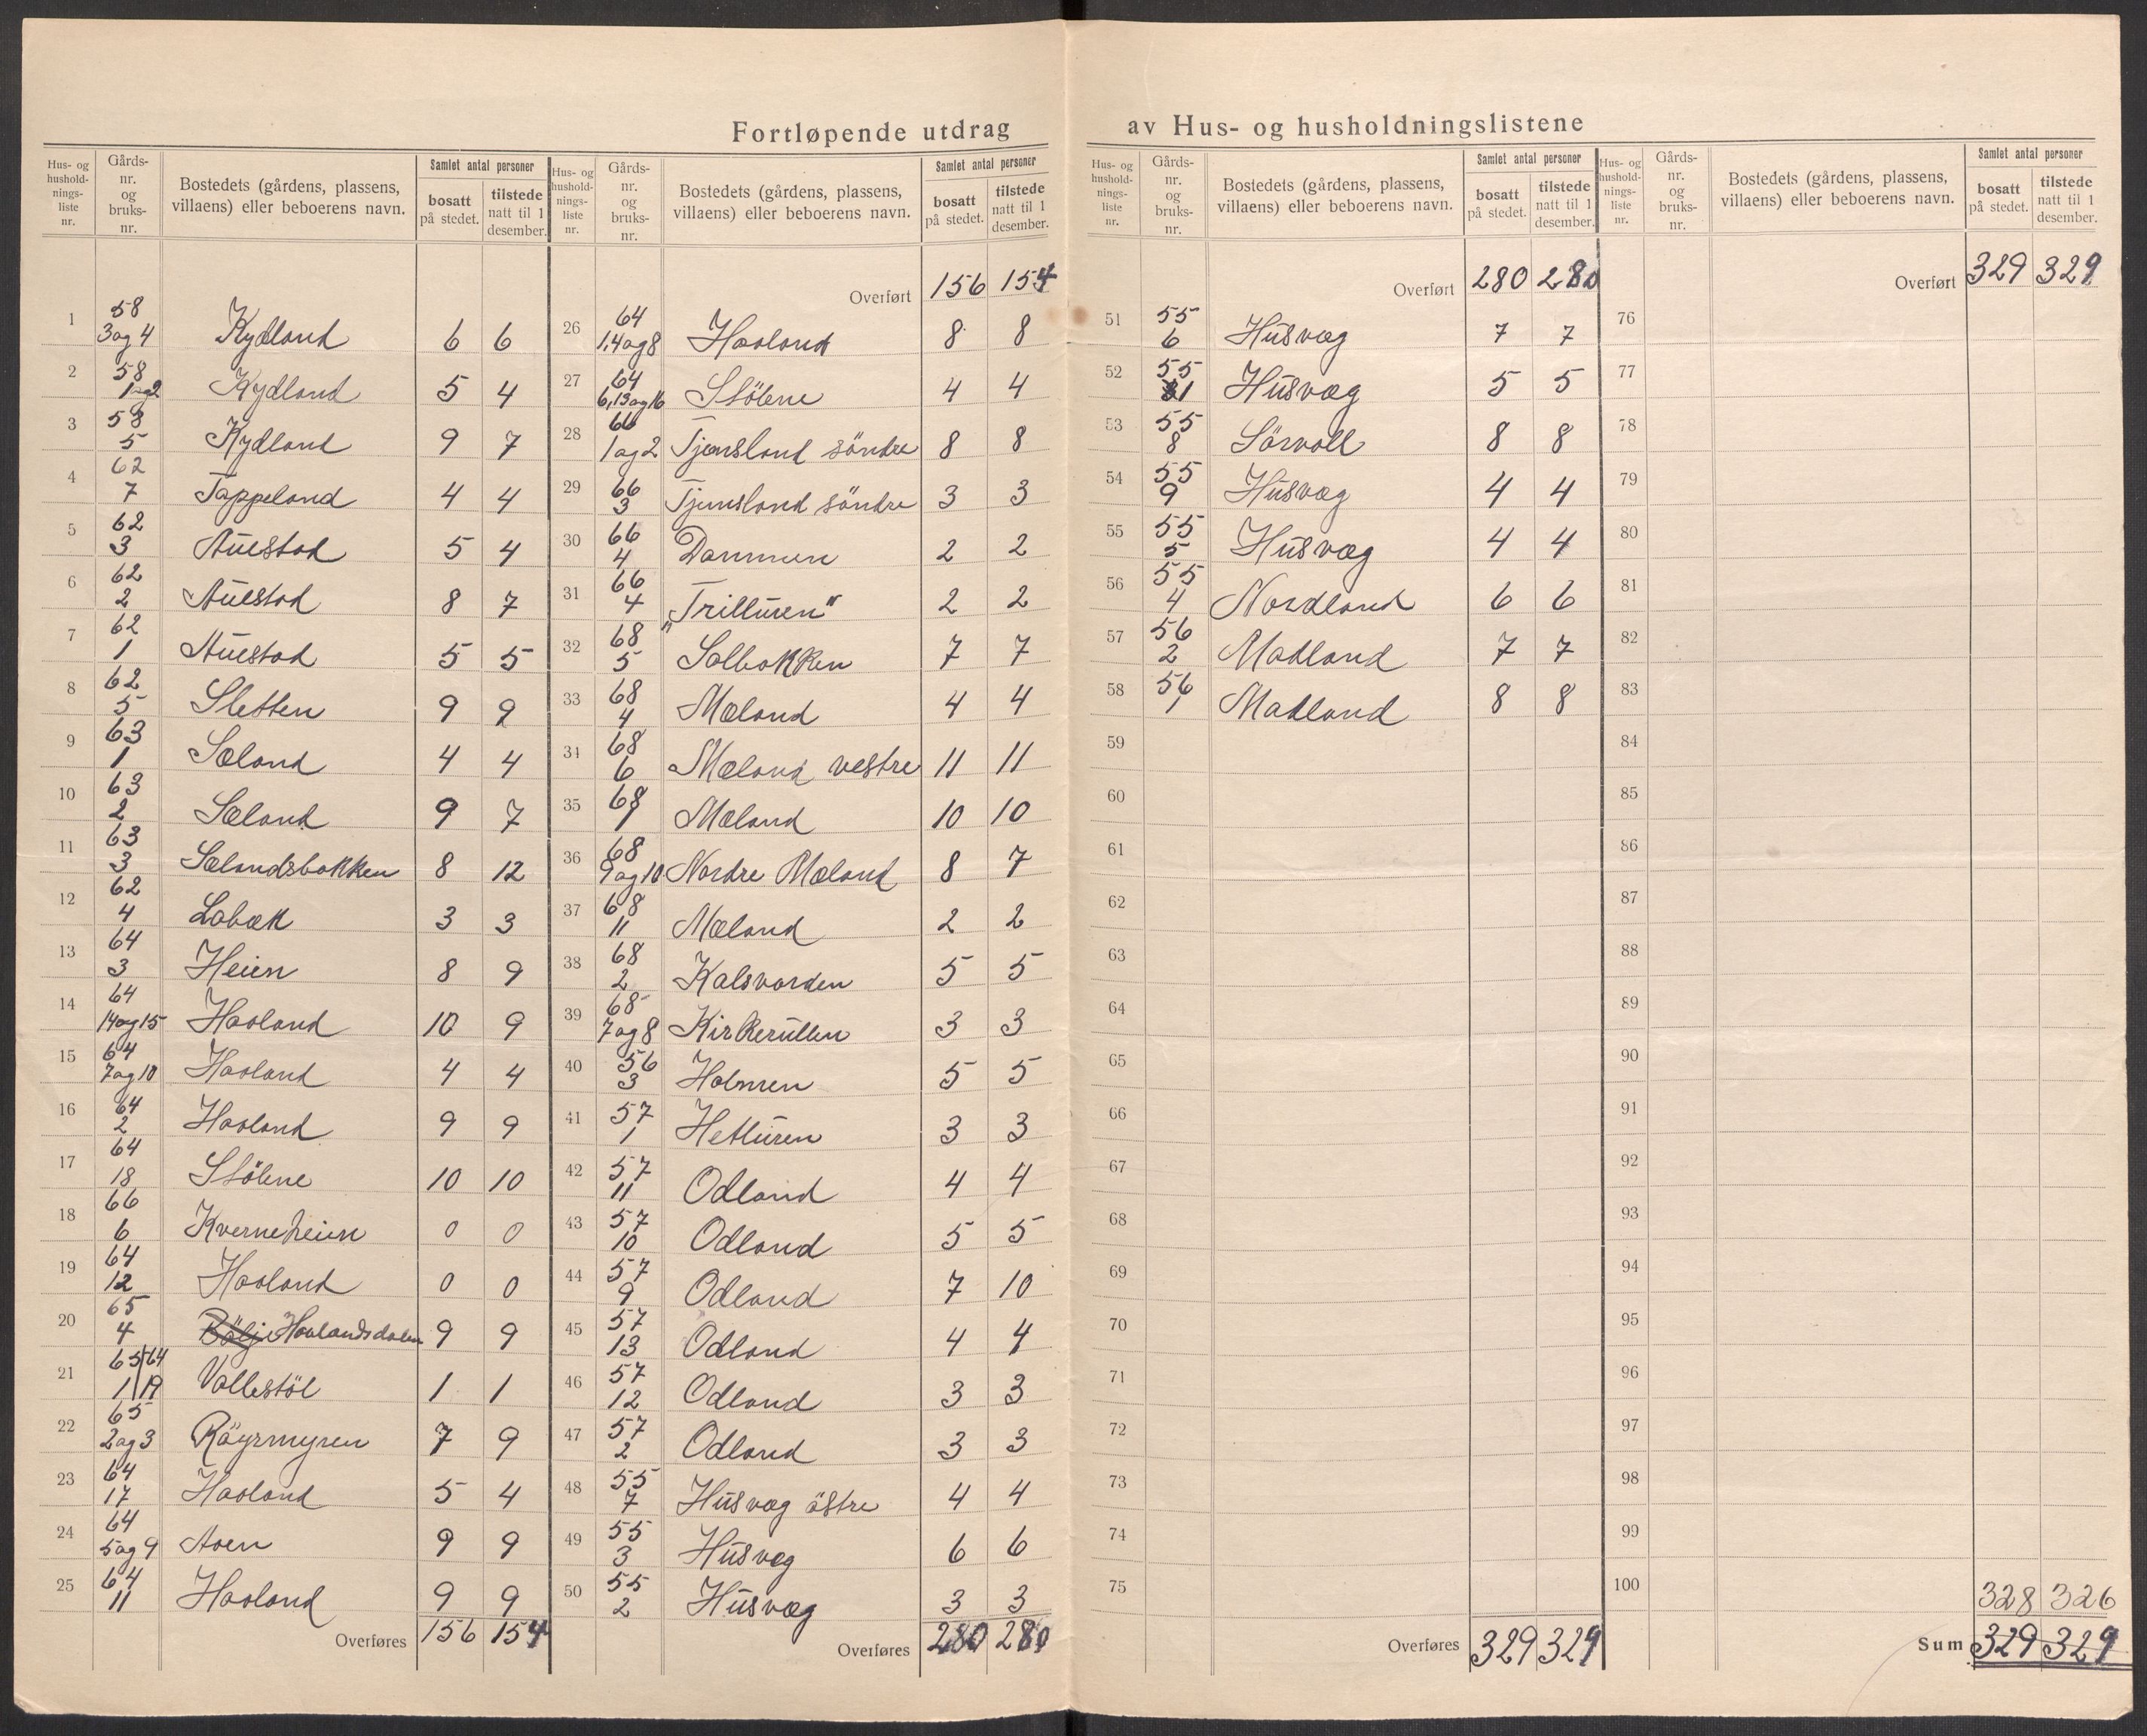 Fortløpende utdrag av Hus- og husholdningslistene
Hus- og husholdnings-liste nr. Gårds-nr. og bruks-nr. Bostedets (gårdens, plassens, villaens) eller beboerens navn. Samlet antal personer bosatt på stedet. tilstede natt til 1 desember.
1 58 3 og 4 Kydland 6 6
2 58 1 og 2 Kydland 5 4
3 58 5 Kydland 9 7
4 62 7 Tappeland 4 4
5 62 3 Auestad 5 4
6 62 2 Auestad 8 7
7 62 1 Auestad 5 5
8 62 5 Sletten 9 9
9 63 1 Sæland 4 4
10 63 2 Sæland 9 7
11 63 3 Sælandsbakken 8 12
12 62 4 Labæk 3 3
13 64 3 Heien 8 9
14 64 14 og 15 Haaland 10 9
15 64 7 og 10 Haaland 4 4
16 64 2 Haaland 9 9
17 64 18 Stölene 10 10
18 66 6 Kverneheien 0 0
19 64 12 Haaland 0 0
20 65 4 Bölje Haalandsdalen 9 9
21 65/64 1/19 Vallestöl 1 1
22 65 2 og 3 Röyrmyren 7 9
23 64 17 Haaland 5 4
24 64 5 og 9 Aaen 9 9
25 64 11 Haaland 9 9
Overføres 156 154
Hus- og husholdnings-liste nr. Gårds-nr. og bruks-nr. Bostedets (gårdens, plassens, villaens) eller beboerens navn. Samlet antal personer bosatt på stedet. tilstede natt til 1 desember.
Overført 156 154
26 64 1,4 og 8 Haaland 8 8
27 64 6,13 og 16 Stölene 4 4
28 66 1 og 2 Tjemsland söndre 8 8
29 66 3 Tjemsland söndre 3 3
30 66 4 Dammen 2 2
31 66 4 "Trilluren" 2 2
32 68 5 Solbakken 7 7
33 68 4 Mæland 4 4
34 68 6 Mæland vestre 11 11
35 68 1 Mæland 10 10
36 68 9 og 10 Nordre Mæland 8 7
37 68 11 Mæland 2 2
38 68 2 Kalsvarden 5 5
39 68 7 og 8 Kirkerullen 3 3
40 56 3 Holmen 5 5
41 57 1 Hetluren 3 3
42 57 11 Odland 4 4
43 57 10 Odland 5 5
44 57 9 Odland 7 10
45 57 13 Odland 4 4
46 57 12 Odland 3 3
47 57 2 Odland 3 3
48 55 7 Husvæg östre 4 4
49 55 3 Husvæg 6 6
50 55 2 Husvæg 3 3
Overføres 280 280
Hus- og husholdnings-liste nr. Gårds-nr. og bruks-nr. Bostedets (gårdens, plassens, villaens) eller beboerens navn. Samlet antal personer bosatt på stedet. tilstede natt til 1 desember.
Overført 280 280
51 55 6 Husvæg 7 7
52 55 1 Husvæg 5 5
53 55 8 Sörvoll 8 8
54 55 9 Husvæg 4 4
55 55 5 Husvæg 4 4
56 55 4 Nordland 6 6
57 56 2 Madland 7 7
58 56 1 Madland 8 8
59
60
61
62
63
64
65
66
67
68
69
70
71
72
73
74
75
Overføres 329 329
Hus- og husholdnings-liste nr. Gårds-nr. og bruks-nr. Bostedets (gårdens, plassens, villaens) eller beboerens navn. Samlet antal personer bosatt på stedet. tilstede natt til 1 desember.
Overført 329 329
76
77
78
79
80
81
82
83
84
85
86
87
88
89
90
91
92
93
94
95
96
97
98
99
100
328 326
Sum 329 329